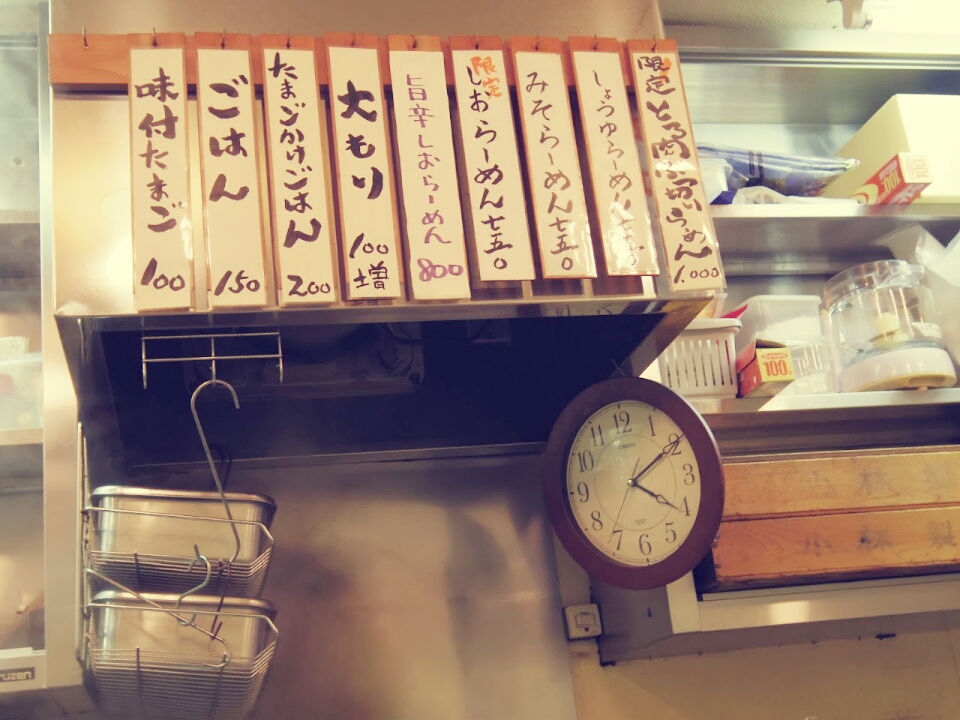 限定とろ肉 つからーめん 1,000
しょうゆらーめん 七五〇
みそらーめん 七五〇
限定
しおらーめん 七五〇
旨辛しおらーめん 800
大もり 100増
たまごかけごはん 200
ごはん 150
味付たまご 100
100
100
12
1
2
3
4
5
6
7
8
9
10
11